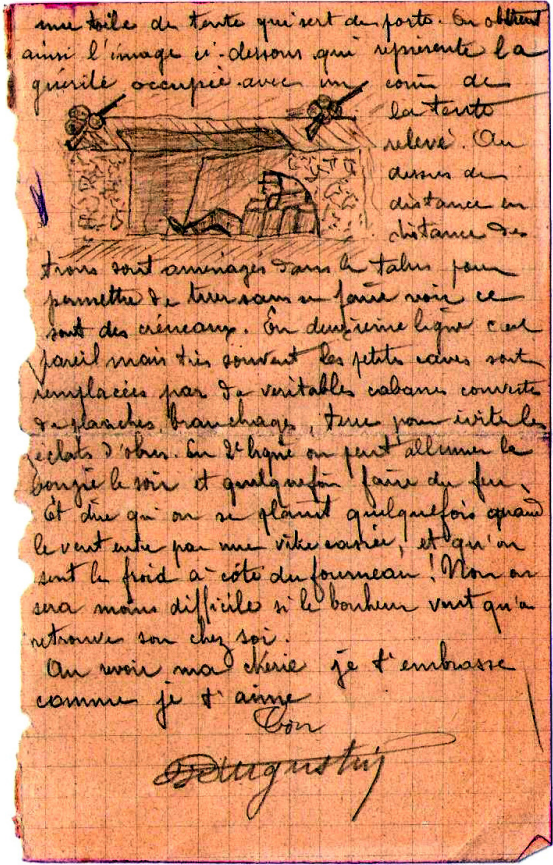 une toile de tente qui sert de porte. On obtient
ainsi l'image ci-dessous qui représente la
guérite occupée avec un coin de
la tente
relevé. Au
dessus de
distance en
distance des
trous sont aménagés dans le talus pour
permettre de tirer sans se faire voir ce
sont des créneaux. En deuxième ligne c'est
pareil mais très souvent les petites caves sont
remplacées par de veritables cabanes couvertes
de planches, branchages, terre pour éviter les
éclats d'obus. En 2e ligne on peut allumer la
bougie le soir et quelquefois faire du feu.
Et dire qu'on se plaint quelquefois quand
le vent entre par une vitre cassée, et qu'on
sent le froid à côté du fourneau ! Non on
sera moins difficile si le bonheur veut qu'on
retrouve son chez soi.
Au revoir ma chérie je t'embrasse
comme je t'aime
Ton
Augustin